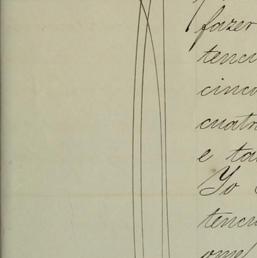 fazer
tenci
cinco
cuatr
e ta
Yo
tencu